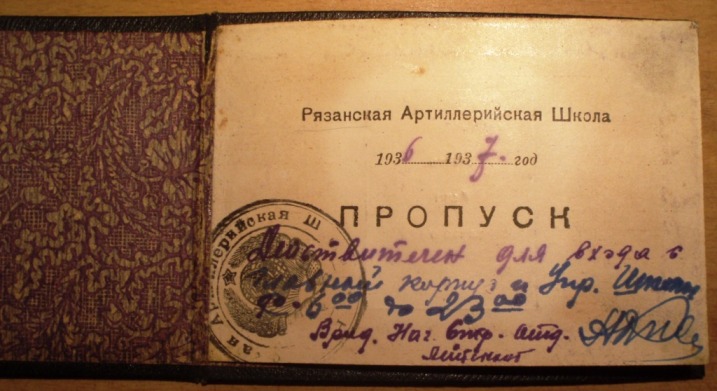 Рязанская Артиллерийская Школа
1936 1937. год
ПРОПУСК
Действителен для входа в
главный корпус и Упр. Школы
с 6 00 до 23 00
Врид. Нач. Стр. отд.
лейтенант